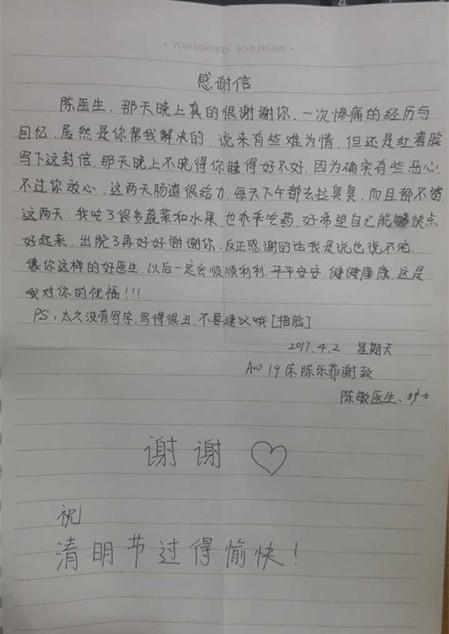 • YOUR MEMORIES YOUR DREAMS •
感谢信
陈医生，那天晚上真的很谢谢你，一次惨痛的经历与
回忆，居然是你帮我解决的，说来有些难为情，但还是红着脸
写下这封信，那天晚上不晓得你睡得好不好，因为确实有些恶心，
不过你放心，这两天肠道很给力，每天下午都去拉臭臭，而且都不错
这两天，我吃了很多蔬菜和水果，也乖乖吃药，好希望自己能够快点
好起来，出院了再好好谢谢你，反正感谢的话我是说也说不完
像你这样的好医生，以后一定会顺顺利利，平平安安，健健康康，这是
我对你的祝福！！！
PS：太久没有写字，写得很丑，不要建议哦［捂脸］
2017.4.2 星期天
19床 陈乐菲谢致
陈敏医生、护士
谢谢 ♡
祝
清明节过得愉快！